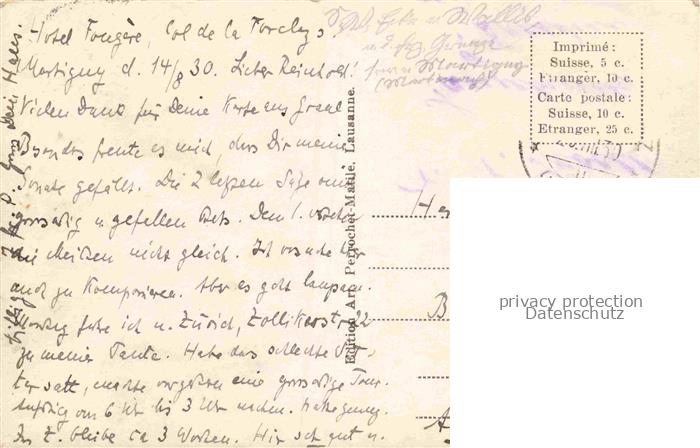 Hotel Fougère, Col de la Forclaz s.
Martigny d. 14/8 30. Lieber Reinhold!
Vielen Dank für Deine Karte aus Graal
Besonders freute es mich, dass Dir meine
Sonate gefällt. Die 2 letzten Sätze sind
grossartig u. gefallen stets. Den 1. verstehen
die meisten nicht gleich. Ich versuche hier
auch zu komponieren. Aber es geht langsam.
Montag fahre ich n. Zürich, Zollikerstr. 22
zu meiner Tante. Habe das schlechte Wet-
ter satt, machte vorgestern eine grossartige Tour.
Aufstieg von 6 Uhr bis 3 Uhr nachm.
In Z. bleibe ca 3 Wochen. Hier sehr gut u.
Gruss Dein Hans.
Wallis
u. frz. Grenze
Martigny
Edition Art. Perrochet-Matile, Lausanne.
Imprimé:
Suisse, 5 c.
Etranger, 10 c.
Carte postale:
Suisse, 10 c.
Etranger, 25 c.
privacy protection
Datenschutz